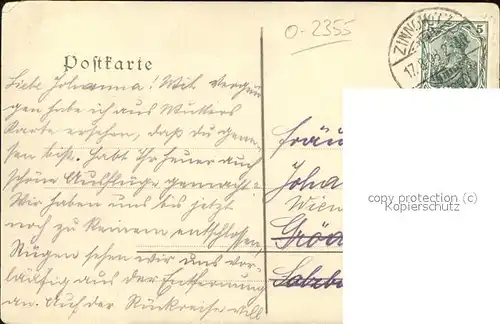 O-2355
ZINNOWITZ
5
Postkarte
Liebe Johanna! Mit vergnü
gen habe ich aus Mutters
Karte ersehen, daß Du gene-
sen bist. Habt Ihr heuer auch
schöne Ausflüge gemacht?
Wir haben uns bis jetzt
noch zu keinem entschlossen,
Rügen sehen wir uns vor-
läufig aus der Entfernung
an. Auf der Rückreise will
Fräu
Joha
Wien
Gröd
Salzb
copyright (c) version
Kopierschutz